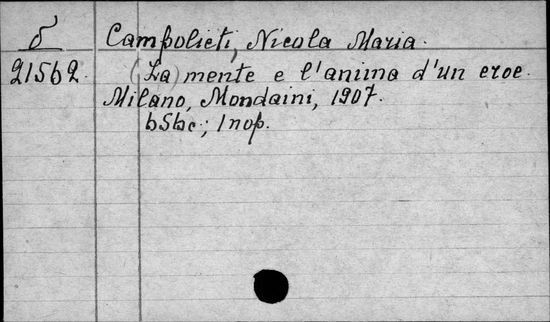 Campolieti, Nicola Maria.
21562. (La) mente e l'anima d'un eroe.
Milano, Mondaini, 1907.